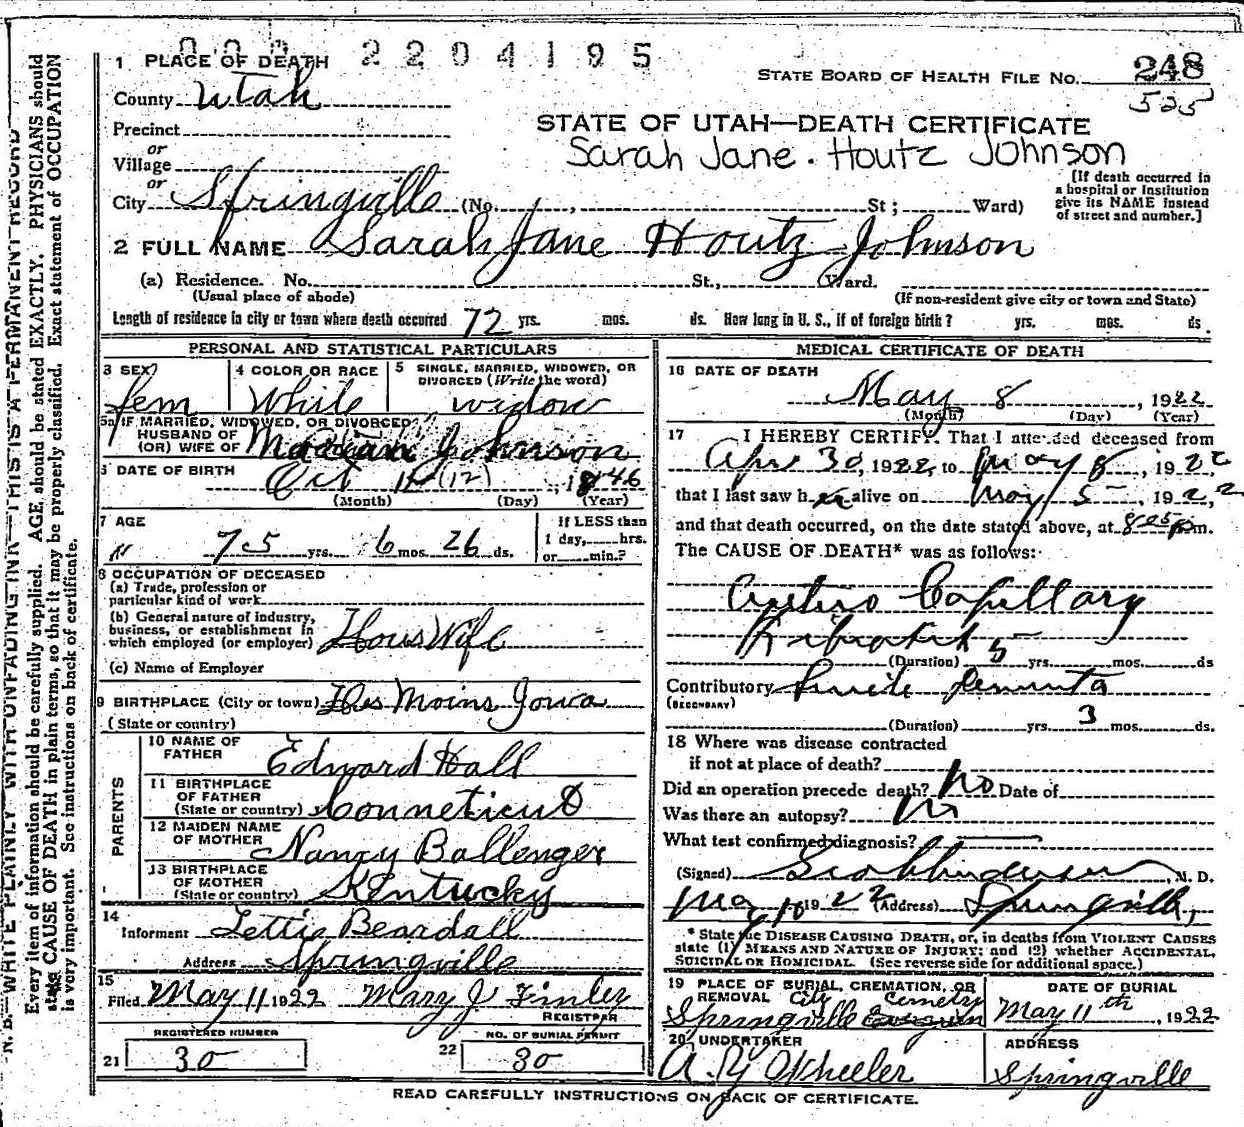 2204195
1 PLACE OF DEATH
STATE BOARD OF HEALTH FILE NO. 248
525
County Utah
STATE OF UTAH—DEATH CERTIFICATE
Precinct
or
Sarah Jane. Houtz Johnson
Village
or
[If death occurred in
a hospital or institution
give its NAME instead
of street and number.]
City Springville (No. , St; Ward)
2 FULL NAME Sarah Jane Houtz Johnson
(a) Residence. No. St., Ward.
(Usual place of abode) (If non-resident give city or town and State)
Length of residence in city or town where death occurred 72 yrs. mos. ds. How long in U. S., if of foreign birth? yrs. mos. ds.
PERSONAL AND STATISTICAL PARTICULARS
3 SEX 4 COLOR OR RACE 5 SINGLE, MARRIED, WIDOWED, OR
DIVORCED (Write the word)
fem White widow
5a IF MARRIED, WIDOWED, OR DIVORCED
HUSBAND OF
(OR) WIFE OF Johnson
6 DATE OF BIRTH
Oct (12), 1846
(Month) (Day) (Year)
7 AGE If LESS than
75 yrs. 6 mos. 26 ds. 1 day, hrs.
or min.?
8 OCCUPATION OF DECEASED
(a) Trade, profession or
particular kind of work
(b) General nature of industry,
business, or establishment in
which employed (or employer) HousWife
(c) Name of Employer
9 BIRTHPLACE (City or town) Des Moins Iowa
(State or country)
PARENTS
10 NAME OF
FATHER Edward Hall
11 BIRTHPLACE
OF FATHER
(State or country) Conneticut
12 MAIDEN NAME
OF MOTHER Nancy Ballenger
13 BIRTHPLACE
OF MOTHER
(State or country) Kentucky
14
Informent Lettie Beardall
Address Springville
15
Filed May 11 1922 Mary J Finley
REGISTRAR
REGISTERED NUMBER NO. OF BURIAL PERMIT
21 30 22 30
MEDICAL CERTIFICATE OF DEATH
16 DATE OF DEATH
May 8, 1922
(Month) (Day) (Year)
17 I HEREBY CERTIFY, That I attended deceased from
Apr 30, 1922, to May 8, 1922
that I last saw her alive on May 5 1922,
and that death occurred, on the date stated above, at 8:05 pm.
The CAUSE OF DEATH* was as follows:
Capillary
(Duration) 5 yrs. mos. ds
Contributory
(SECONDARY)
(Duration) yrs. 3 mos. ds.
18 Where was disease contracted
if not at place of death?
Did an operation precede death? No Date of
Was there an autopsy? No
What test confirmed diagnosis?
(Signed) M. D.
May 10 1922 (Address) Springville,
* State the DISEASE CAUSING DEATH, or, in deaths from VIOLENT CAUSES
state (1) MEANS AND NATURE OF INJURY; and (2) whether ACCIDENTAL,
SUICIDAL OR HOMICIDAL. (See reverse side for additional space.)
19 PLACE OF BURIAL, CREMATION, OR
REMOVAL City Cemetry
Springville Evergreen
DATE OF BURIAL
May 11th, 1922
20 UNDERTAKER
A. Y. Wheeler
ADDRESS
Springville
READ CAREFULLY INSTRUCTIONS ON BACK OF CERTIFICATE.
N. B.—WRITE PLAINLY WITH UNFADING INK—THIS IS A PERMANENT RECORD
Every item of information should be carefully supplied. AGE should be stated EXACTLY. PHYSICIANS should
state CAUSE OF DEATH in plain terms, so that it may be properly classified. Exact statement of OCCUPATION
is very important. See instructions on back of certificate.